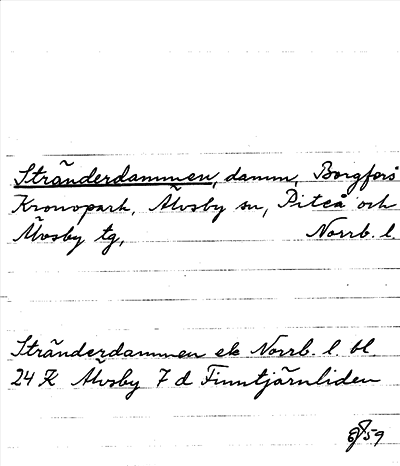 Stränderdammen, damm, Borgfors
Kronopark, Älvsby sn, Piteå och
Älvsby tg, Norrb. l.
Stränderdammen ek Norrb. l. bl
24 K Älvsby 7 d Finntjärnliden
59